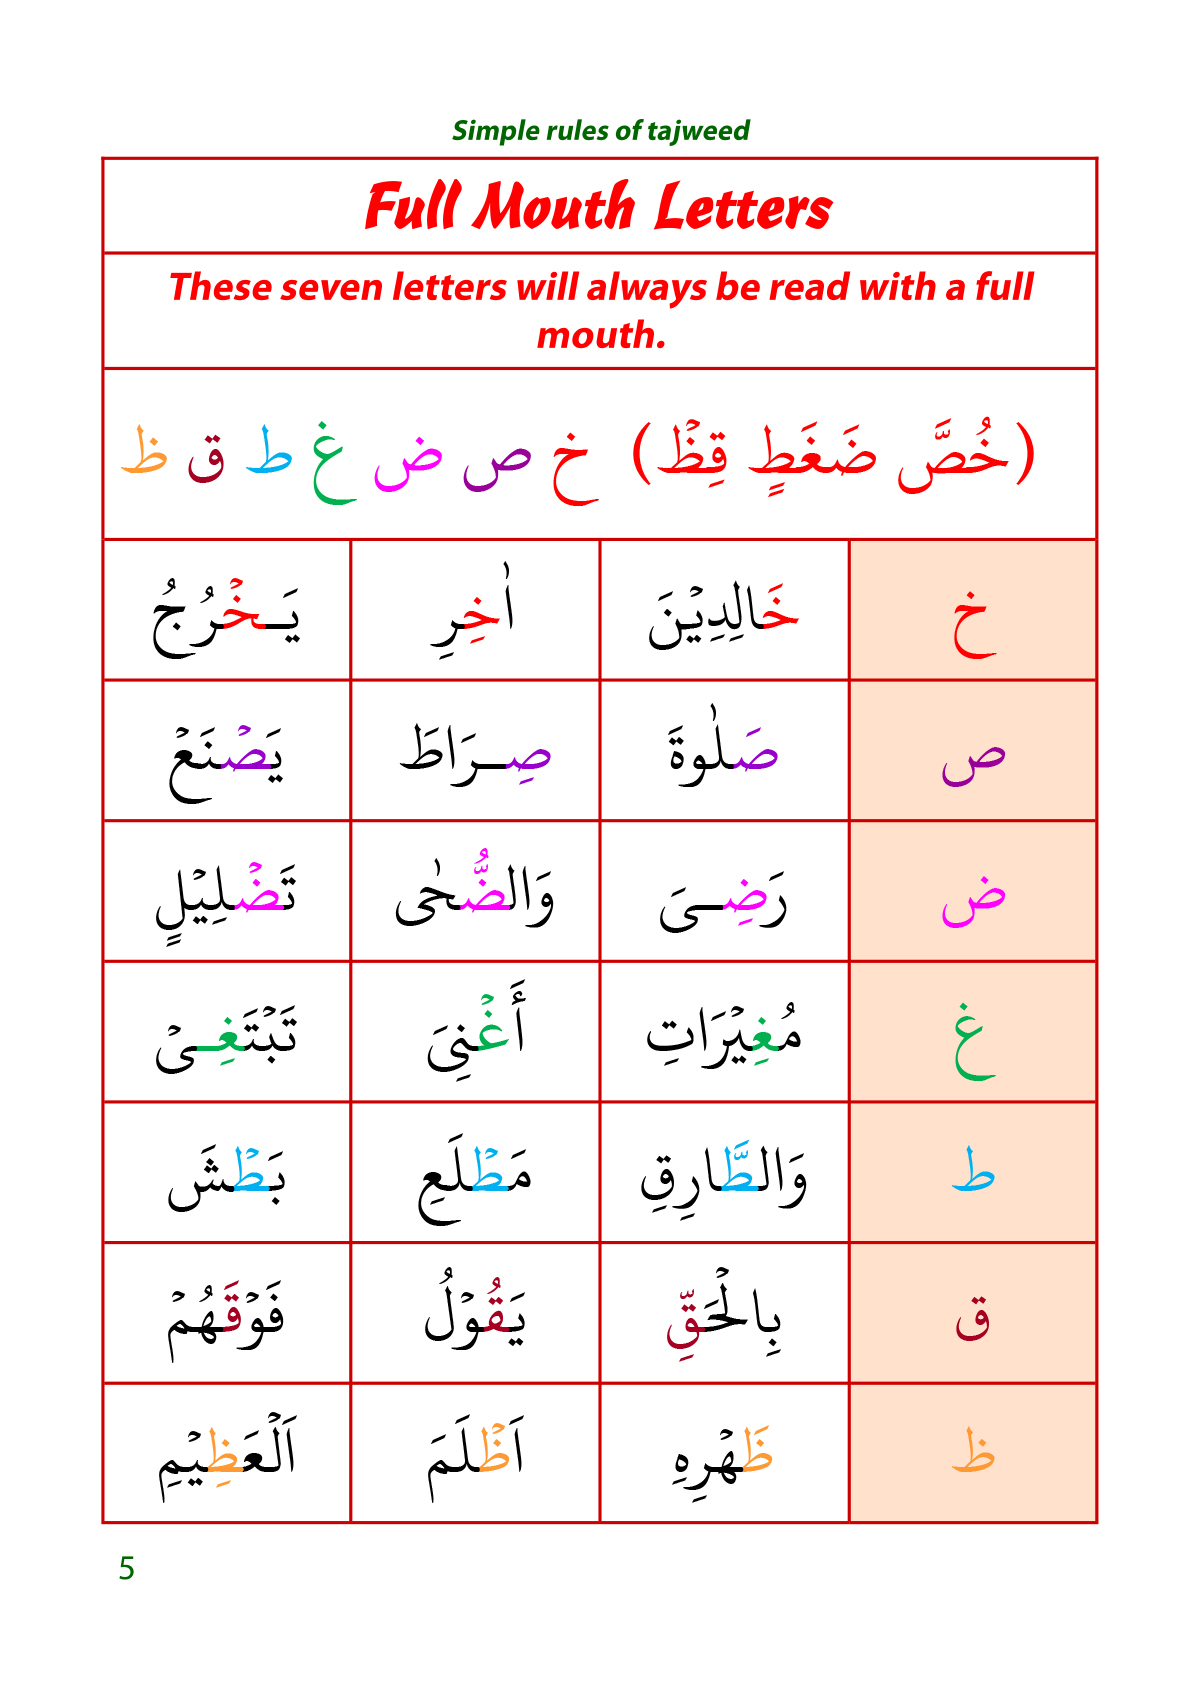 Simple rules of tajweed
Full Mouth Letters
These seven letters will always be read with a full
mouth.
(خُصَّ ضَغَطٍ قِظْ) خ ص ض غ ط ق ظ
خ خَالِدِيْنَ اٰخِرِ يَـخْرُجُ
ص صَلٰوةَ صِـرَاطَ يَصْنَعْ
ض رَضِـىَ وَالضُّحٰى تَضْلِيْلٍ
غ مُغِيْرَاتِ أَغْنِىَ تَبْتَغِـىْ
ط وَالطَّارِقِ مَطْلَعِ بَطْشَ
ق بِالْحَقِّ يَقُوْلُ فَوْقَهُمْ
ظ ظَهْرِهِ اَظْلَمَ اَلْعَظِيْمِ
5